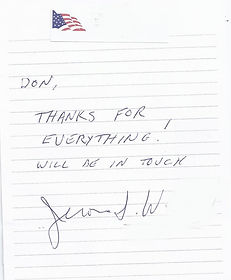 DON,
THANKS FOR
EVERYTHING!
WILL BE IN TOUCH